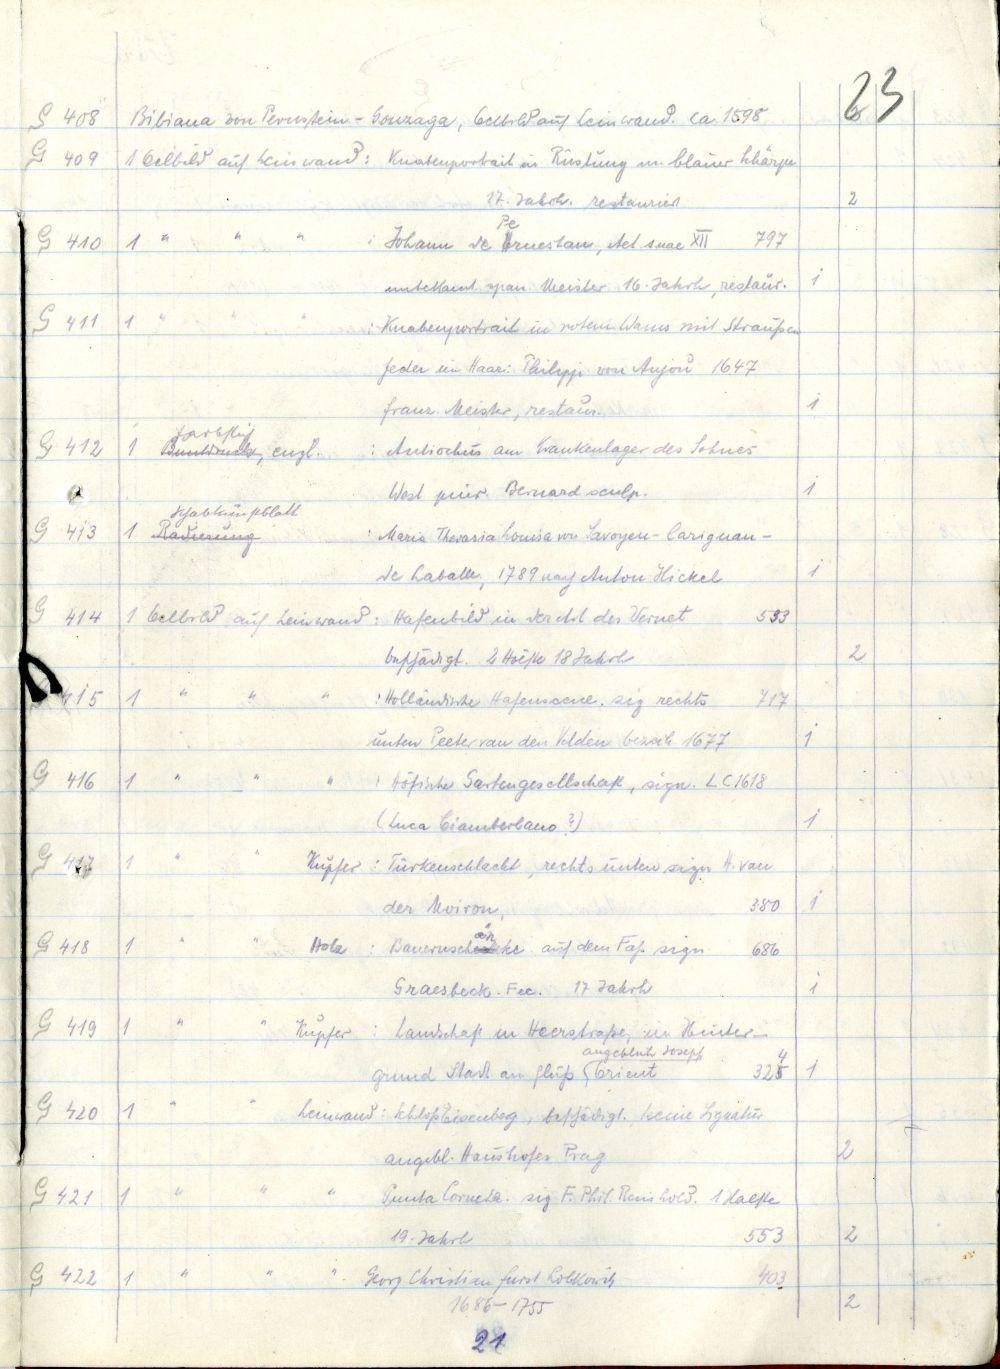 23
G 408 Bibiana von Pernstein - Gonzaga, Oelbild auf Leinwand. ca. 1598
G 409 1 Oelbild auf Leinwand: Knabenportrait in Rüstung m. blauer Schärpe
17. Jahrh. restauriert 2
Pe
G 410 1 " " " : Johann de Ernestan, Aet. suae XII 797
unbekannt. span. Meister 16. Jahrh, restaur. 1
G 411 1 " " " : Knabenportrait in rotem Wams mit Straußen
feder im Haar: Philipp von Anjou 1647
franz. Meister, restaur. 1
farbstich
G 412 1 Buntdruck, engl. : Antiochus am Krankenlager des Sohnes
West pinx. Bernard sculp. 1
Schabkunstblatt
G 413 1 Radierung : Maria Theresia Louisa von Savoyen - Carignan -
de Laballe, 1789 nach Anton Hickel 1
G 414 1 Oelbild auf Leinwand: Hafenbild in der Art des Vernet 593
beschädigt. 2 Hälfte 18 Jahrh 2
415 1 " " " : Holländische Hafenscene. sig rechts 717
unten Peeter van den Velden bezeich 1677 1
G 416 1 " " " : Höfische Gartengesellschaft, sign. LC 1618
(Luca Ciamberlano?) 1
G 417 1 " " Kupfer : Türkenschlacht, rechts unten sign H. van
der Moiron, 380 1
G 418 1 " " Holz : Bauernschänke auf dem Faß sign 686
Graesbeck. Fec. 17 Jahrh 1
G 419 1 " " Kupfer : Landschaft m Heerstraße, im Hinter-
angeblich Joseph 4
grund Stadt am Fluß (Orient 325 1
G 420 1 " " Leinwand: Schloß Eisenberg, beschädigt. keine Signatur
angebl. Haushofer Prag 2
G 421 1 " " " Punta Corneta. sig F. Phil. Reinhold. 1 Hälfte
19. Jahrh 553 2
G 422 1 " " " Georg Christian Fürst Lobkowitz 403
1686 - 1755 2
21